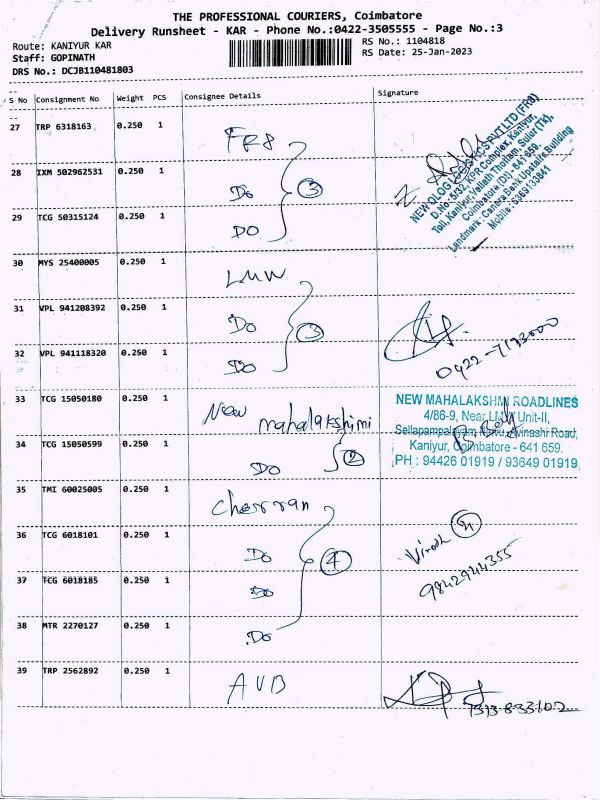 THE PROFESSIONAL COURIERS, Coimbatore
Delivery Runsheet - KAR - Phone No.:0422-3505555 - Page No.:3
Route: KANIYUR KAR
RS No.: 1104818
Staff: GOPINATH
RS Date: 25-Jan-2023
DRS No.: DCJB110481803
S No Consignment No Weight PCS Consignee Details Signature
27 TRP 6318163 0.250 1 FR8
28 IXM 502962531 0.250 1 Do 3
29 TCG 50315124 0.250 1 DO
NEW OLOG LOGISTICS PVT LTD (FR8)
D.No:-5/32, KPR Complex, Kaniyur,
Toll, Kaniyur, Vellath Thottam, Sulur (Tk),
Coimbatore (Dt) - 641 659.
Landmark : Canara Bank Upstairs Building
Mobile : 6369133641
30 MYS 25400005 0.250 1 LMW
31 VPL 941208392 0.250 1 Do 3
32 VPL 941118320 0.250 1 Do
33 TCG 15050180 0.250 1 New mahalakshimi
34 TCG 15050599 0.250 1 DO 2
NEW MAHALAKSHMI ROADLINES
4/86-9, Near LMW Unit-II,
Kaniyur, Coimbatore - 641 659.
PH : 94426 01919 / 93649 01919
35 TMI 60025005 0.250 1 Cherran
36 TCG 6018101 0.250 1 Do 4
37 TCG 6018185 0.250 1 Do
38 MTR 2270127 0.250 1 Do
Vinoth 4
9842944355
39 TRP 2562892 0.250 1 AVB